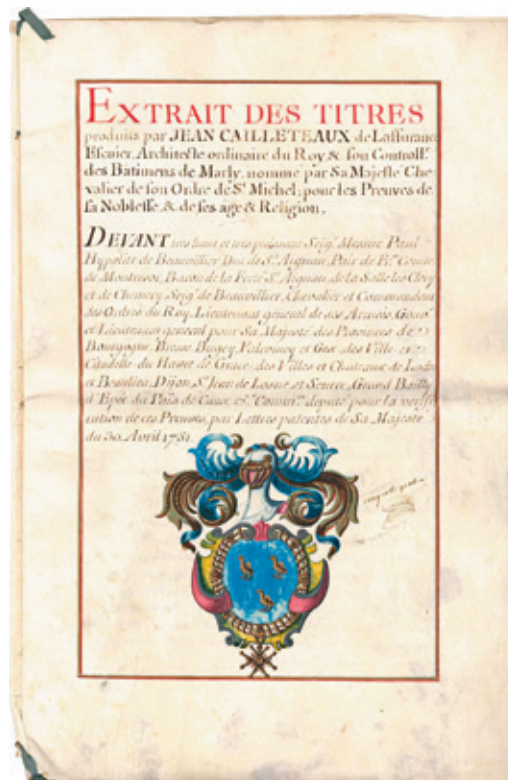 EXTRAIT DES TITRES
produits par JEAN CAILLETEAUX de Lassurance
Escuier, Architecte ordinaire du Roy & son Controll.r
des Batimens de Marly, nommé par Sa Majesté Che
valier de son Ordre de S.t Michel; pour les Preuves de
sa Noblesse & de ses age & Religion.
DEVANT tres haut et tres puissant Seig.r Messire Paul
Hypolite de Beauvillier Duc de S.t Aignan, Pair de Fr.ce Comte
de Montresor, Baron de la Ferté S.t Aignan, de la Salle les Clery
et de Chemery, Seig.r de Beauvillier, Chevalier et Commandeur
des Ordres du Roy, Lieutenant général de ses Armées, Gouv.r
et Lieutenant general pour Sa Majesté des Provinces de
Bourgogne, Bresse, Bugey, Valromey et Gex des Ville et
Citadelle du Havre de Grace, des Villes et Chateaux de Loches
et Beaulieu, Dijon, S.t Jean de Losne et Seurre, Grand Bailly
d'Epée du Païs de Caux, &.c Comm.re deputé pour la veriffi
cation de ces Preuves, par Lettres patentes de Sa Majesté
du 30. Avril 1751.